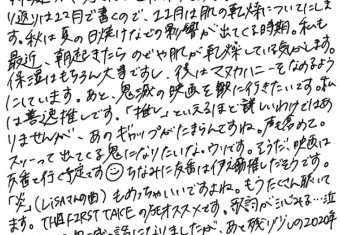 り返りは12月で書くので、11月は肌の乾燥についてにしま
す。秋は夏の日焼けなどの影響が出てくる時期。私も
最近、朝起きたらのどや肌が乾燥している気がします。
保湿はもちろん大事ですし、夜はマヌカハニーをなめるよう
にしています。あと、鬼滅の映画を観に行きたいです。私
は善逸推しです。「推し」といえるほど詳しいわけではあ
りませんが、あのギャップがたまらんですね。声も含めて。
スーッって出てくる鬼になりたいな。ウソです。そうだ、映画は
友香と行く予定です☺ちなみに友香は伊之助推しだそうです。
「炎」(LiSAさんの曲)もめっちゃいいですよね。もうたくさん聴いて
ます。THE FIRST TAKEの炎オススメです。歌詞が沁みる…泣
になりましたが、あと残り少しの2020年